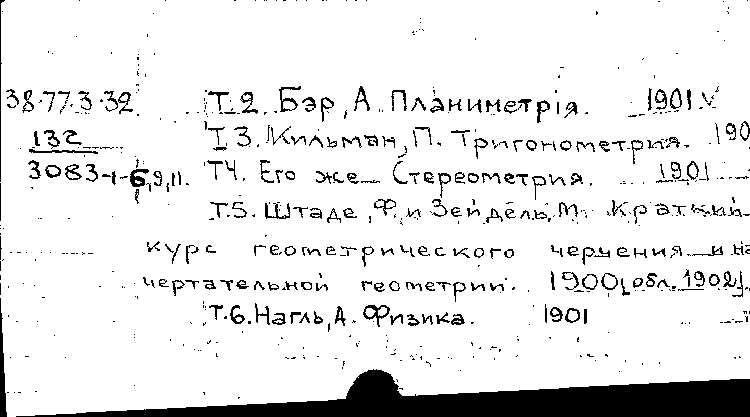 38.77.3.32 Т.2. Бэр, А. Планиметрія. 1901
132 Т 3. Кильман, П. Тригонометрия. 190
3083-1-6,9,11. Т4. Его же Стереометрия. 1901
Т.5. Штаде, Ф. и Зейдель, М. Краткий
курс геометрического черчения и на
чертательной геометрии. 1900[обл. 1902].
Т.6. Нагль, А. Физика. 1901